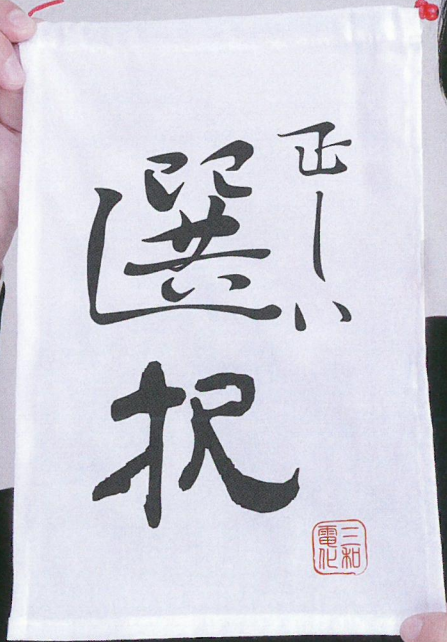 正しい
選択
三和
電化